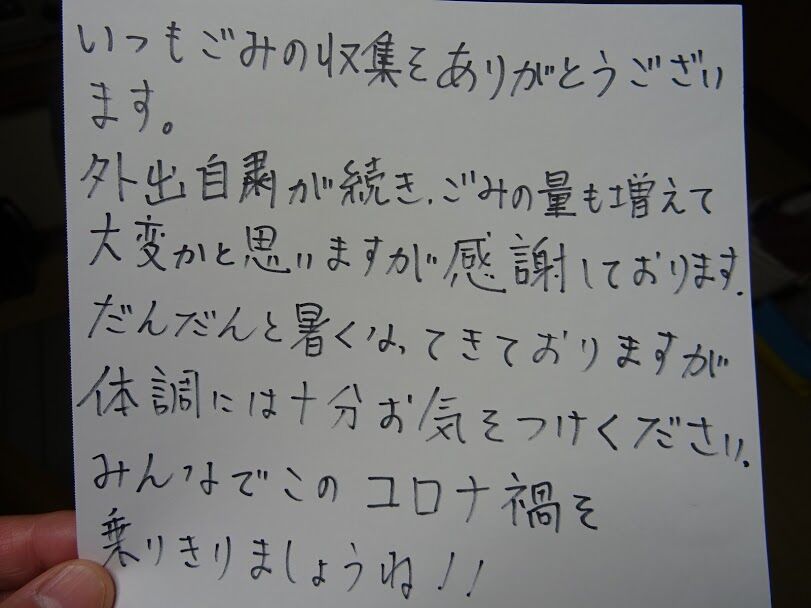 いつもごみの収集をありがとうござい
ます。
外出自粛が続き、ごみの量も増えて
大変かと思いますが感謝しております.
だんだんと暑くなってきておりますが
体調には十分お気をつけください.
みんなでこのコロナ禍を
乗りきりましょうね!!